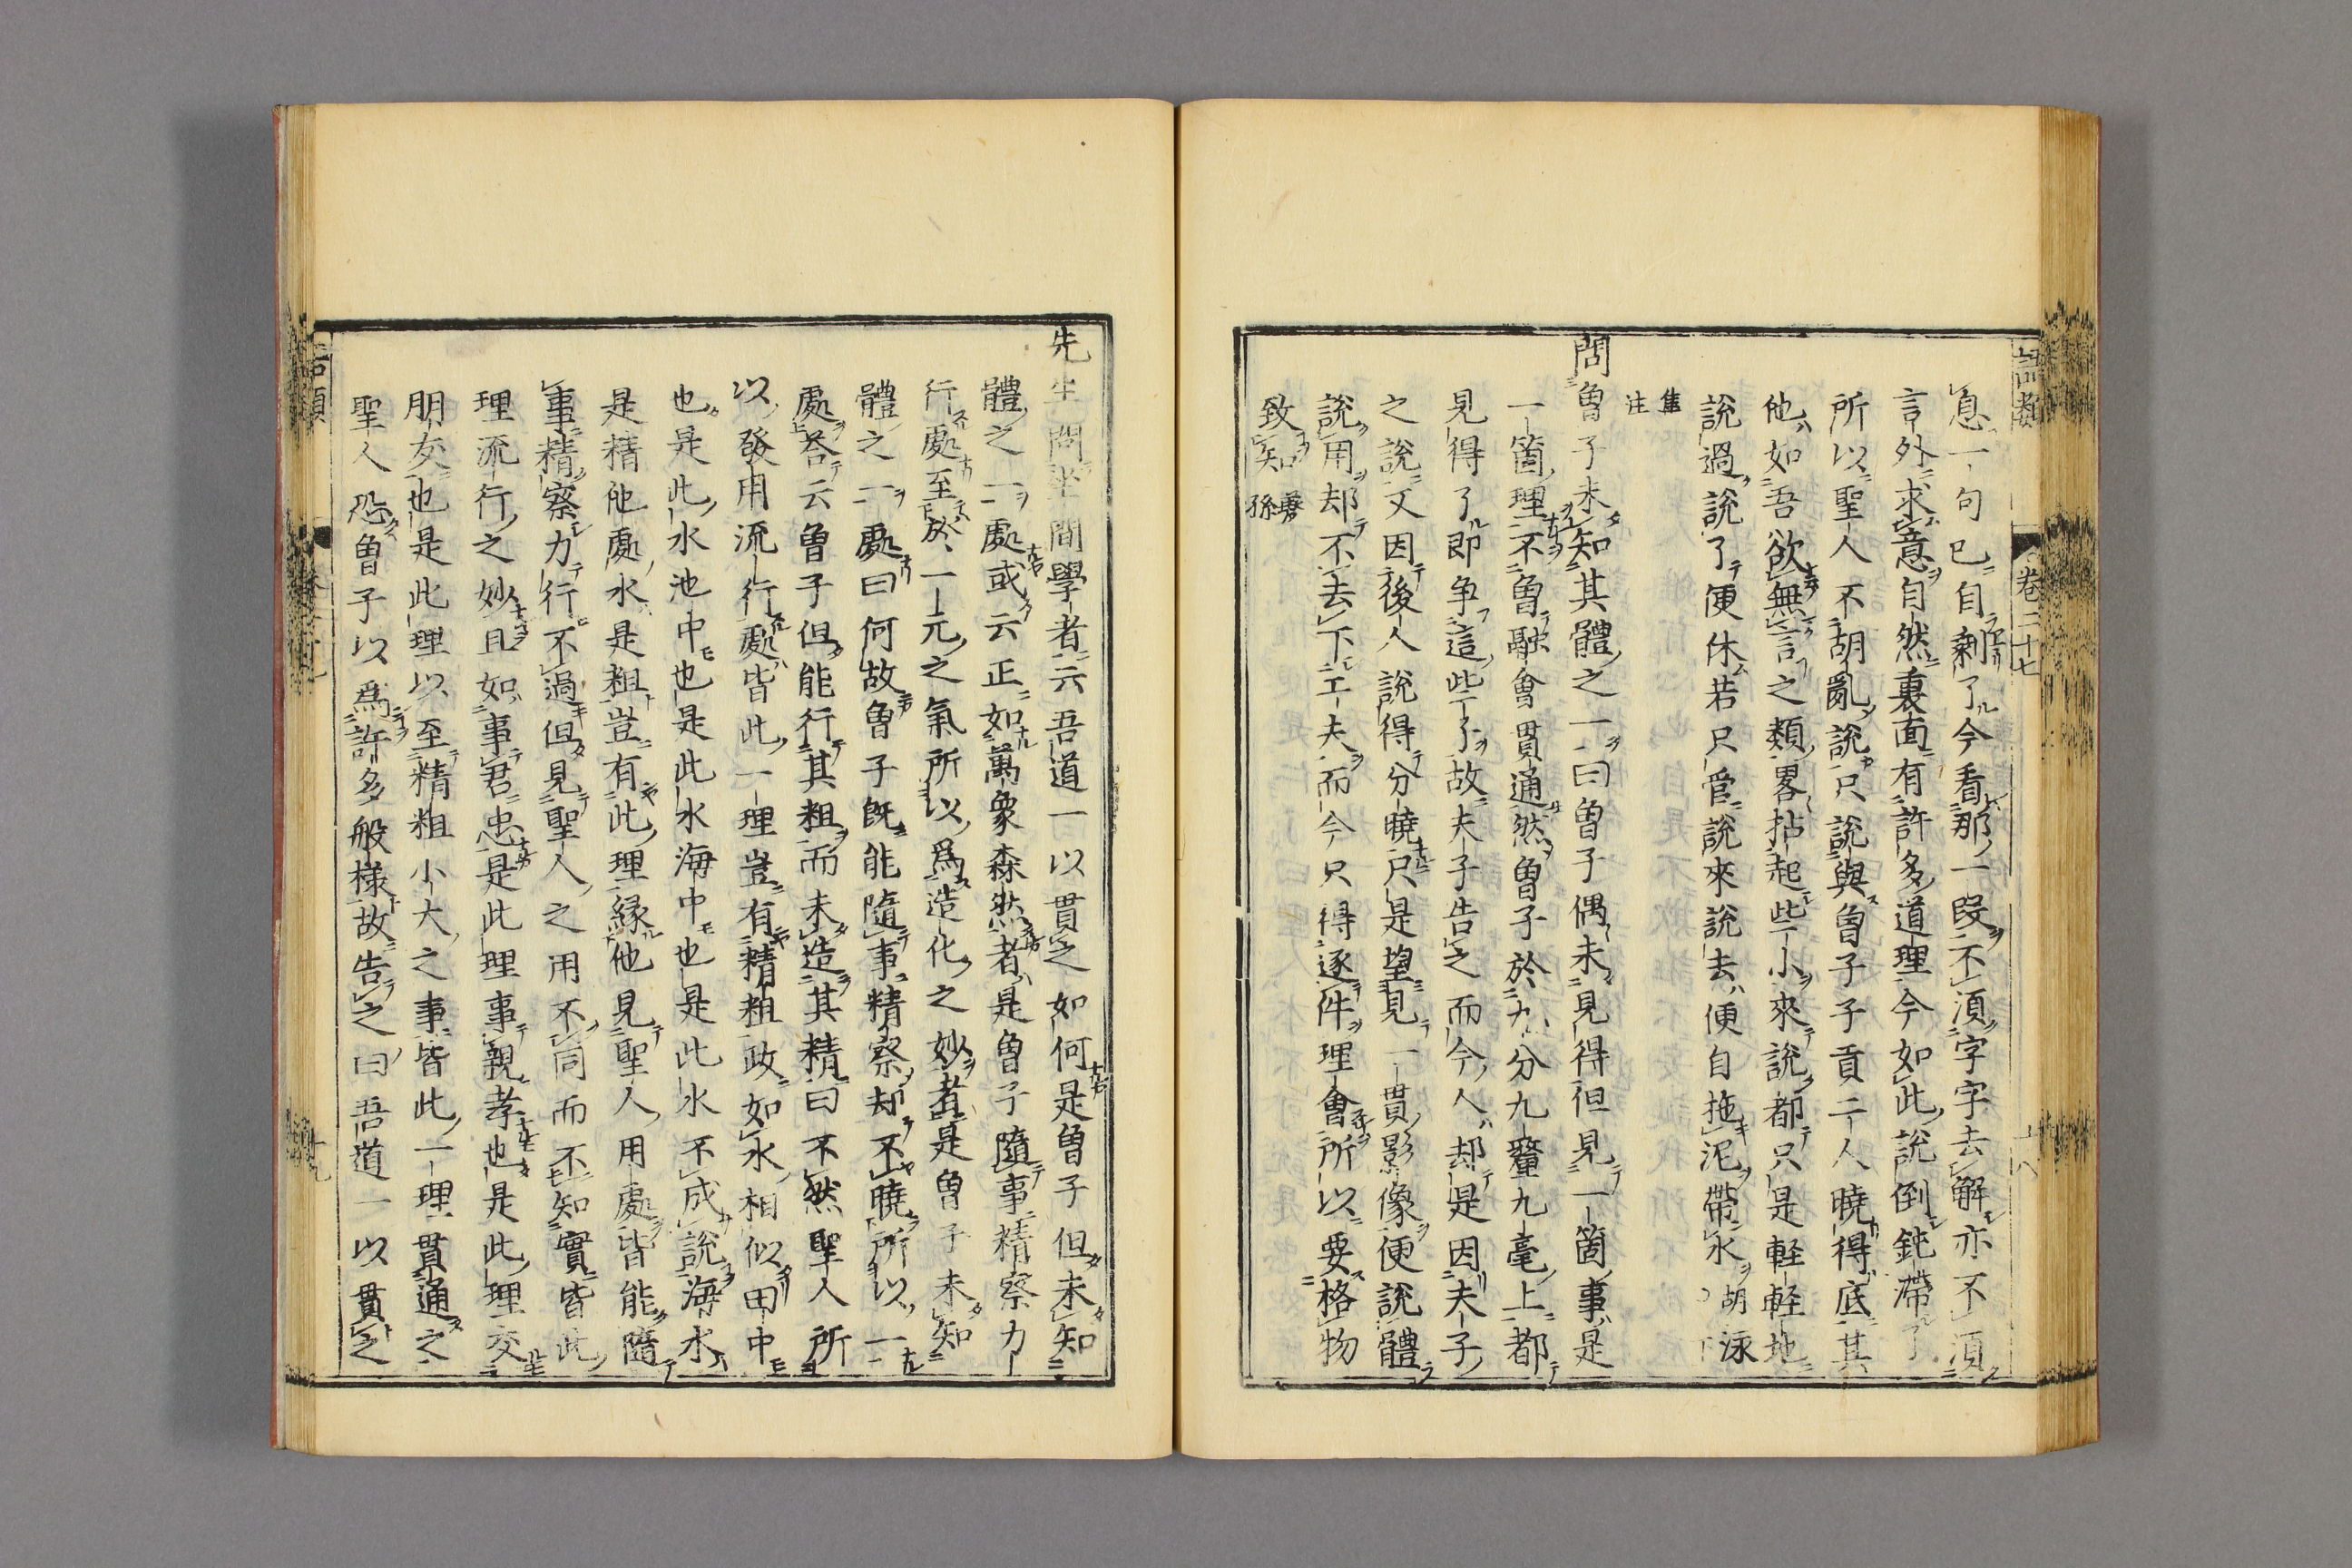 語類 卷二十七 十八
息一句已自剩了今看那一段不須字字去解亦不須
言外求意自然裏面有許多道理今如此說倒鈍滯了
所以聖人不胡亂說只說與曾子子貢二人曉得底其
他如吾欲無言之類畧拈起些小來說都只是軽軽地
說過說了便休若只管說來說去便自拖泥帶水胡泳
集注
問曾子未知其體之一曰曾子偶未見得但見一箇事是
一箇理不曾融會貫通然曾子於九分九釐九毫上都
見得了即争這些了故夫子告之而今人却是因夫子
之說又因後人說得分曉只是望見一貫影像便說體
說用却不去下工夫而今只得逐件理會所以要格物
致知 夔孫
先生問坐間學者云吾道一以貫之如何是曾子但未知
體之一處或云正如萬象森然者是曾子隨事精察力
行處至於一元之氣所以爲造化之妙者是曾子未知
體之一處曰何故曾子既能隨事精察却不曉所以一
處荅云曾子但能行其粗而未造其精曰不然聖人所
以發用流行處皆此一理豈有精粗政如水相似田中
也是此水池中也是此水海中也是此水不成說海水
是精他處水是粗豈有此理緣他見聖人用處皆能隨
事精察力行不過但見聖人之用不同而不知實皆此
理流行之妙且如事君忠是此理事親孝也是此理交
朋友也是此理以至精粗小大之事皆此一理貫通之
聖人恐曾子以爲許多般様故告之曰吾道一以貫之
語類